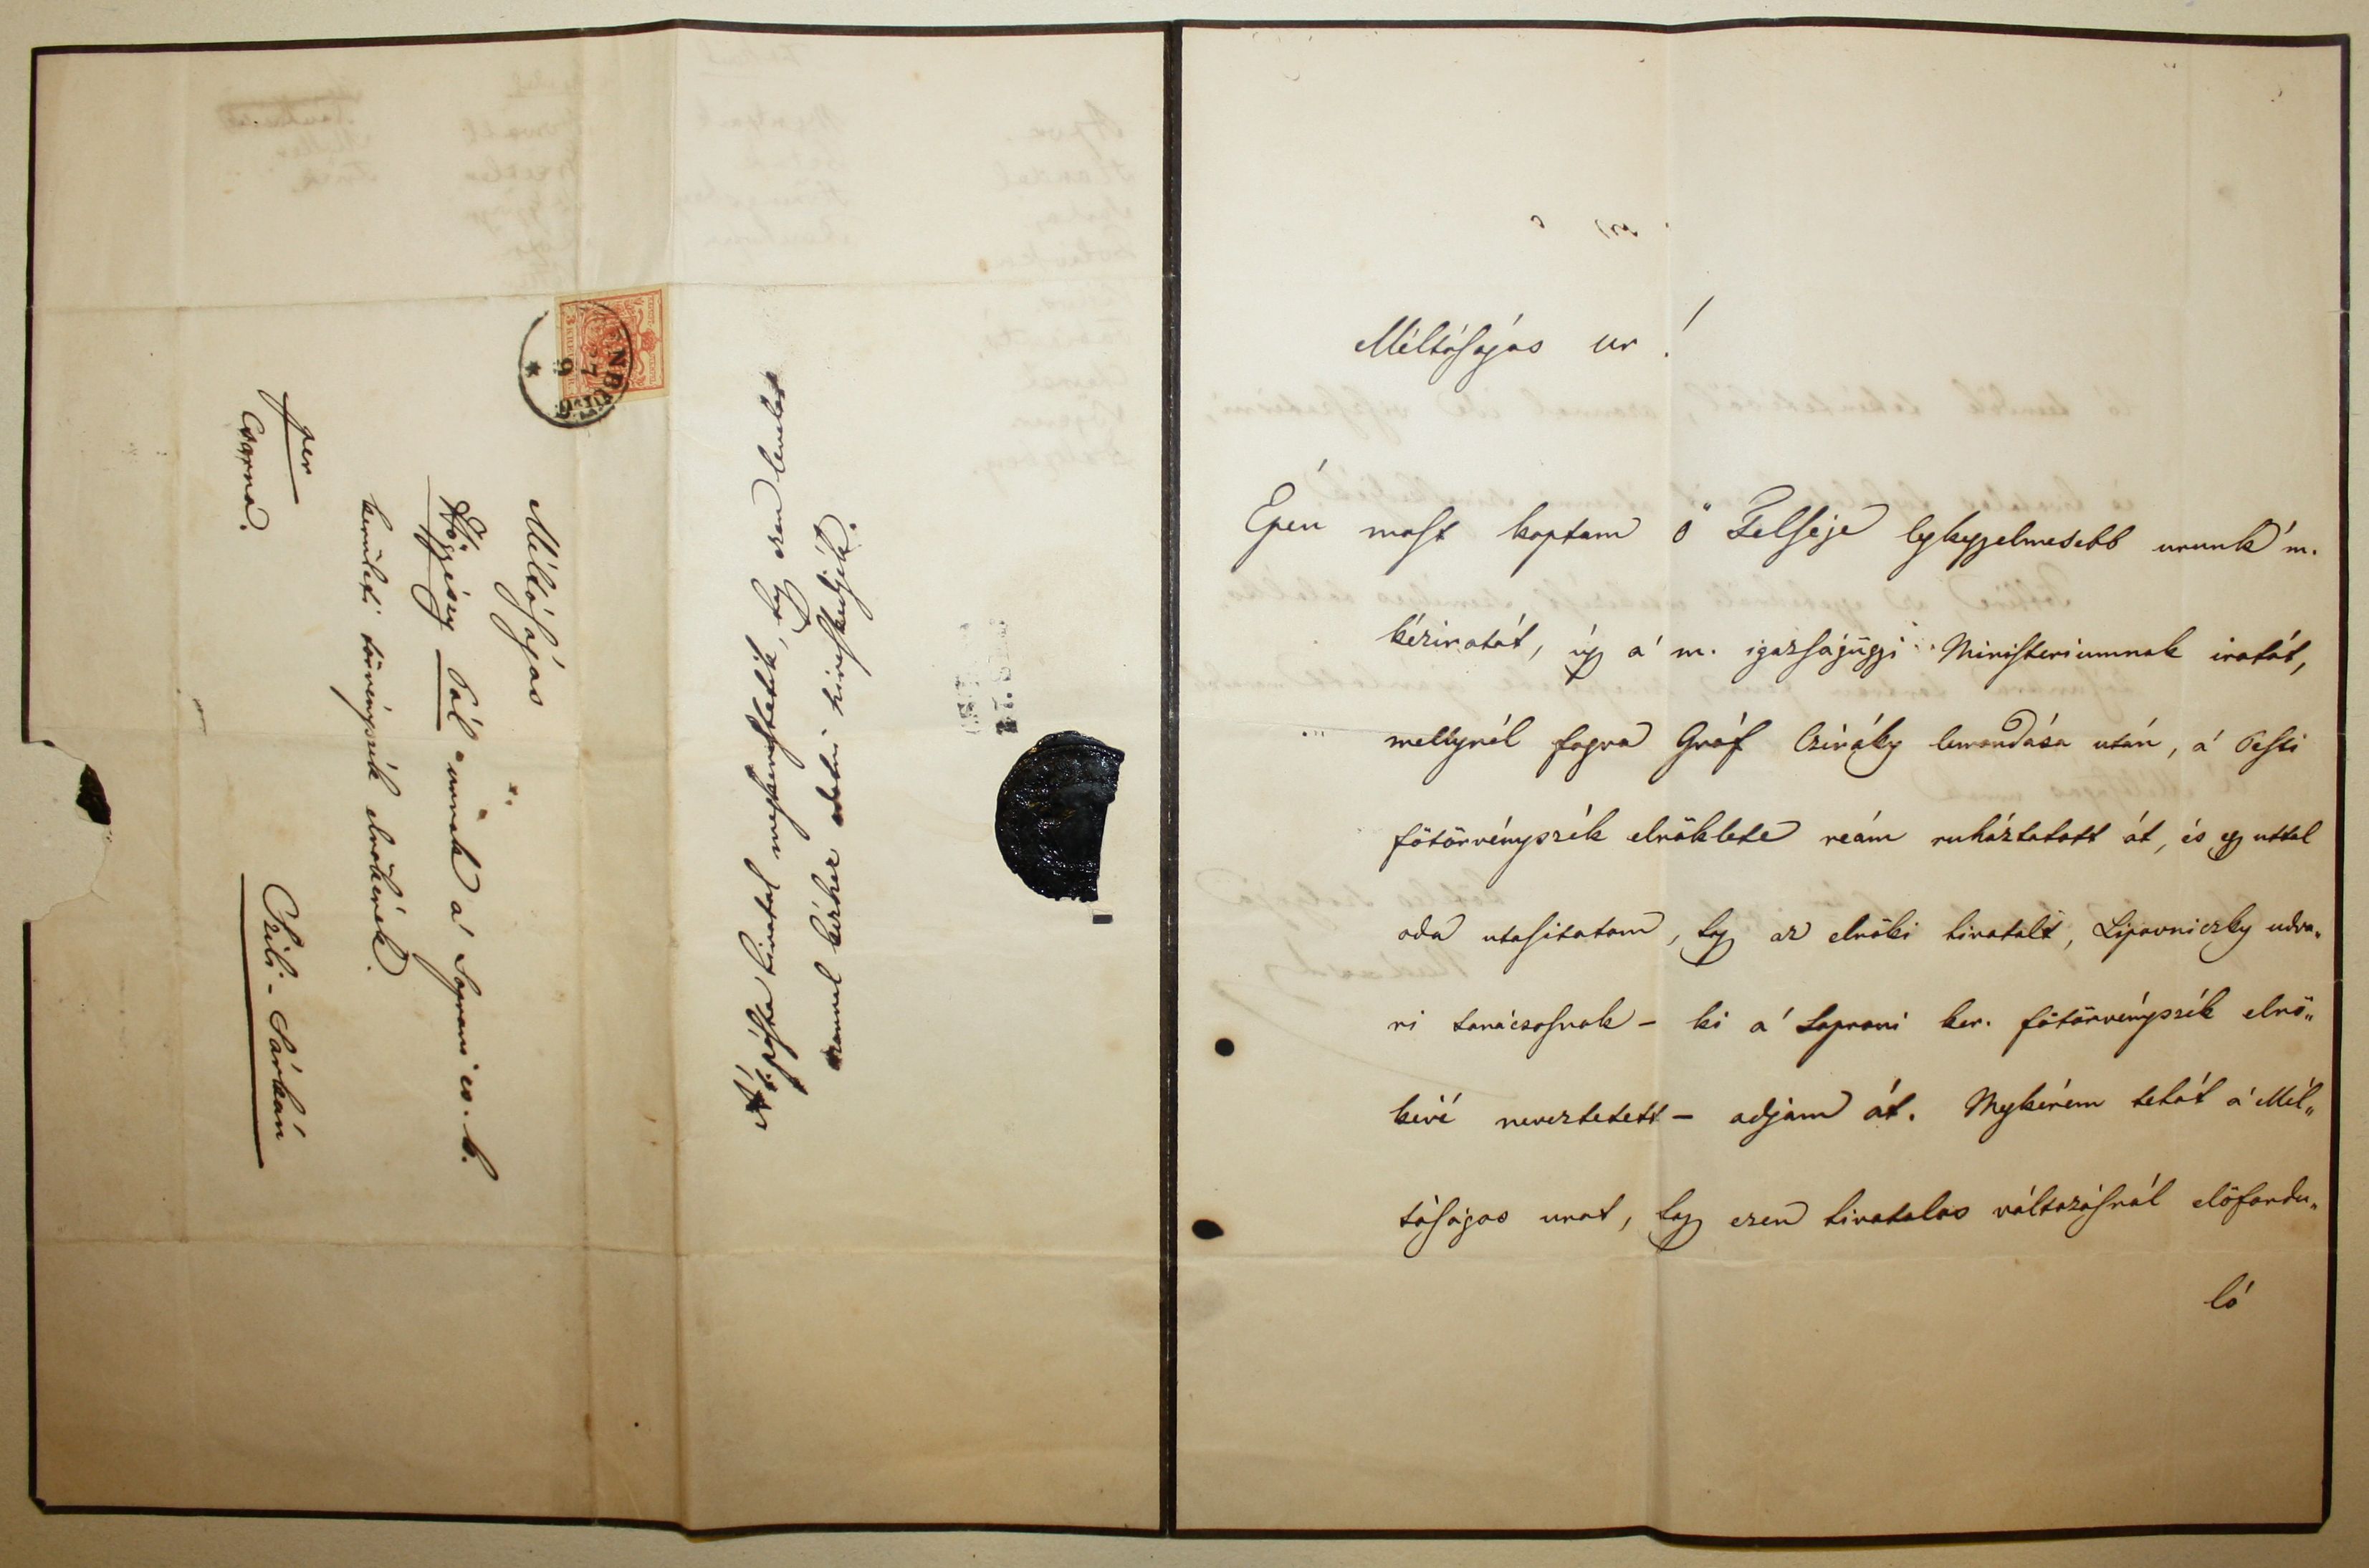 Méltóságos
Pál urnak a' Soproni cs. k.
kerületi törvényszék elnökének.
per
Csorna.
Szili-Sárkán
3 KREUZER
NBURG
A' t. posta hivatal megkerestetik, hogy ezen levelet
azonnal kézhez adatni szíveskedjék.
Méltóságos ur!
Épen most kaptam ő Felsége legkegyelmesebb urunk' m.
kéziratát, úgy a' m. igazságügyi Ministeriumnak iratát,
mellynél fogva Gróf Cziráky lemondása után, a' Pesti
főtörvényszék elnöklete reám ruháztatott át, és egyuttal
oda utasitatom, hogy az elnöki hivatalt, Lipovniczky udva„
ri tanácsosnak – ki a' Soproni ker. főtörvényszék elnö„
kévé neveztetett – adjam át. Megkérem tehát a' Mél„
tóságos urat, hogy ezen hivatalos változásnál előfordu„
ló